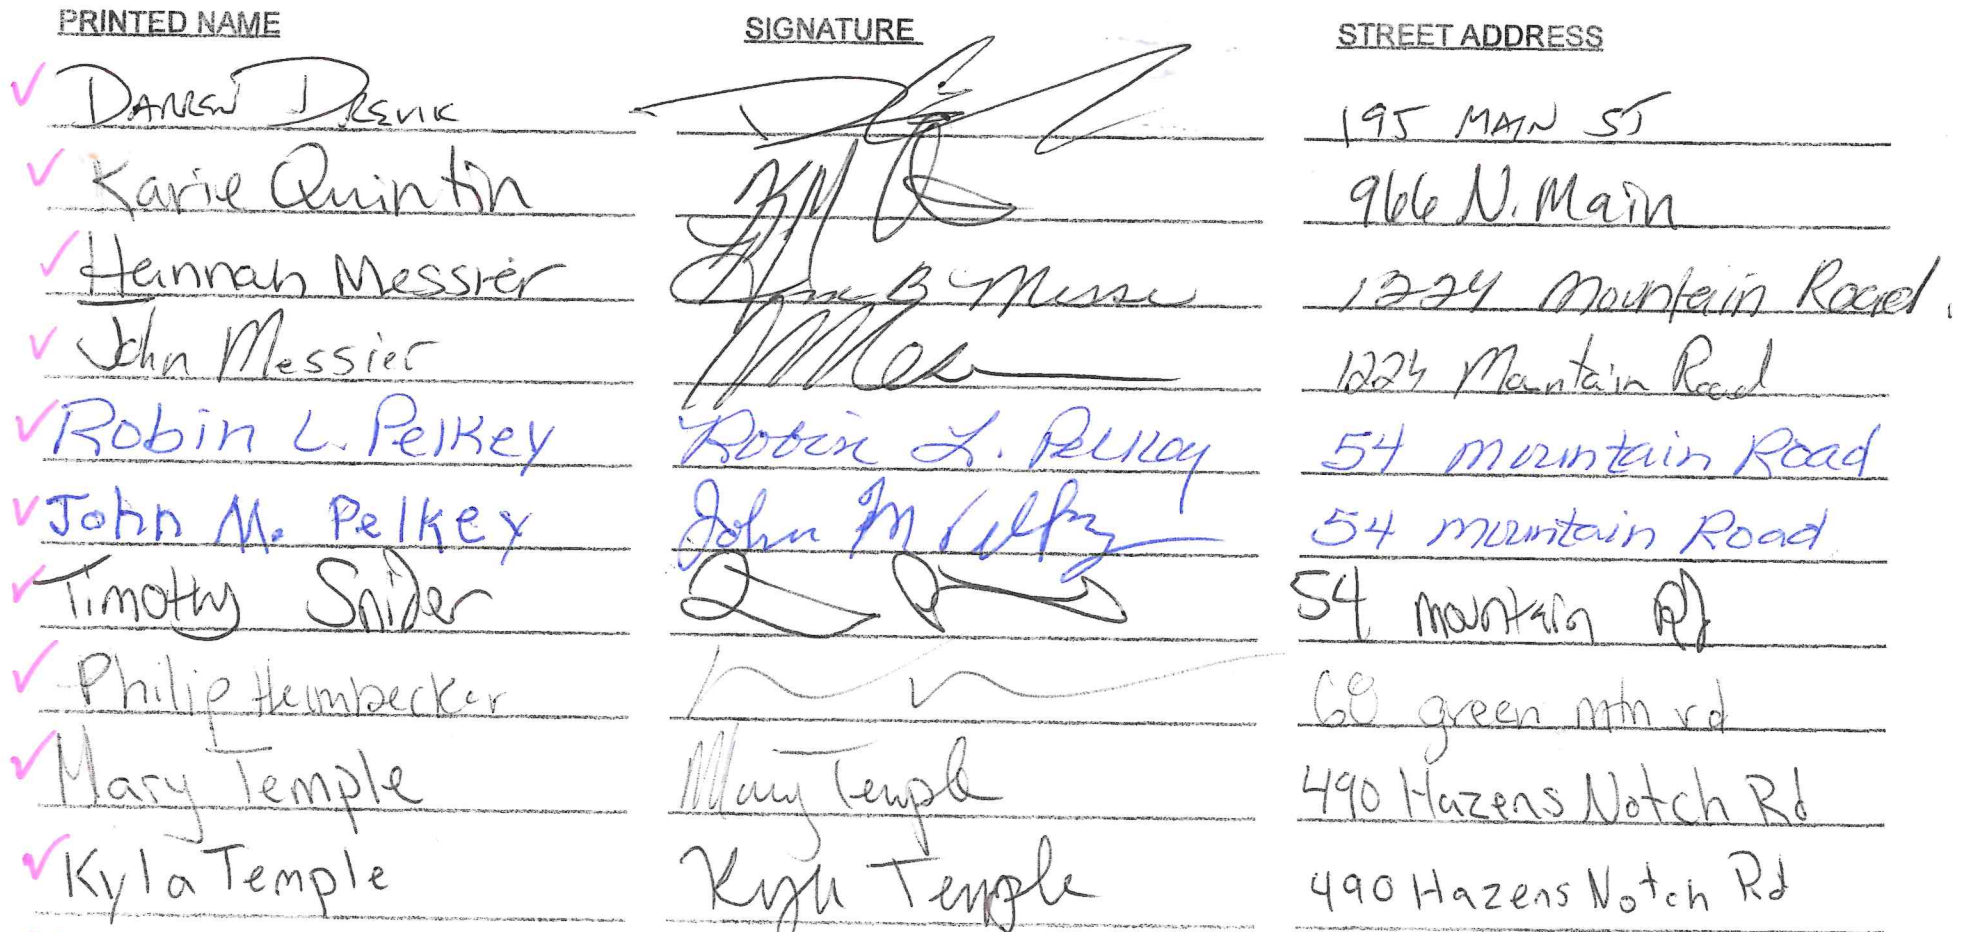 PRINTED NAME SIGNATURE STREET ADDRESS
✓ DARREN DREVIK 195 MAIN ST
✓ Karie Quintin 966 N. Main
✓ Hannah Messier 1224 Mountain Road.
✓ John Messier 1224 Mountain Road
✓ Robin L. Pelkey Robin L. Pelkey 54 Mountain Road
✓ John M. Pelkey John M Pelkey 54 Mountain Road
✓ Timothy Snider 54 Mountain Rd
✓ Philip Heimbecker 60 green mtn rd
✓ Mary Temple Mary Temple 490 Hazens Notch Rd
✓ Kyla Temple Kyla Temple 490 Hazens Notch Rd